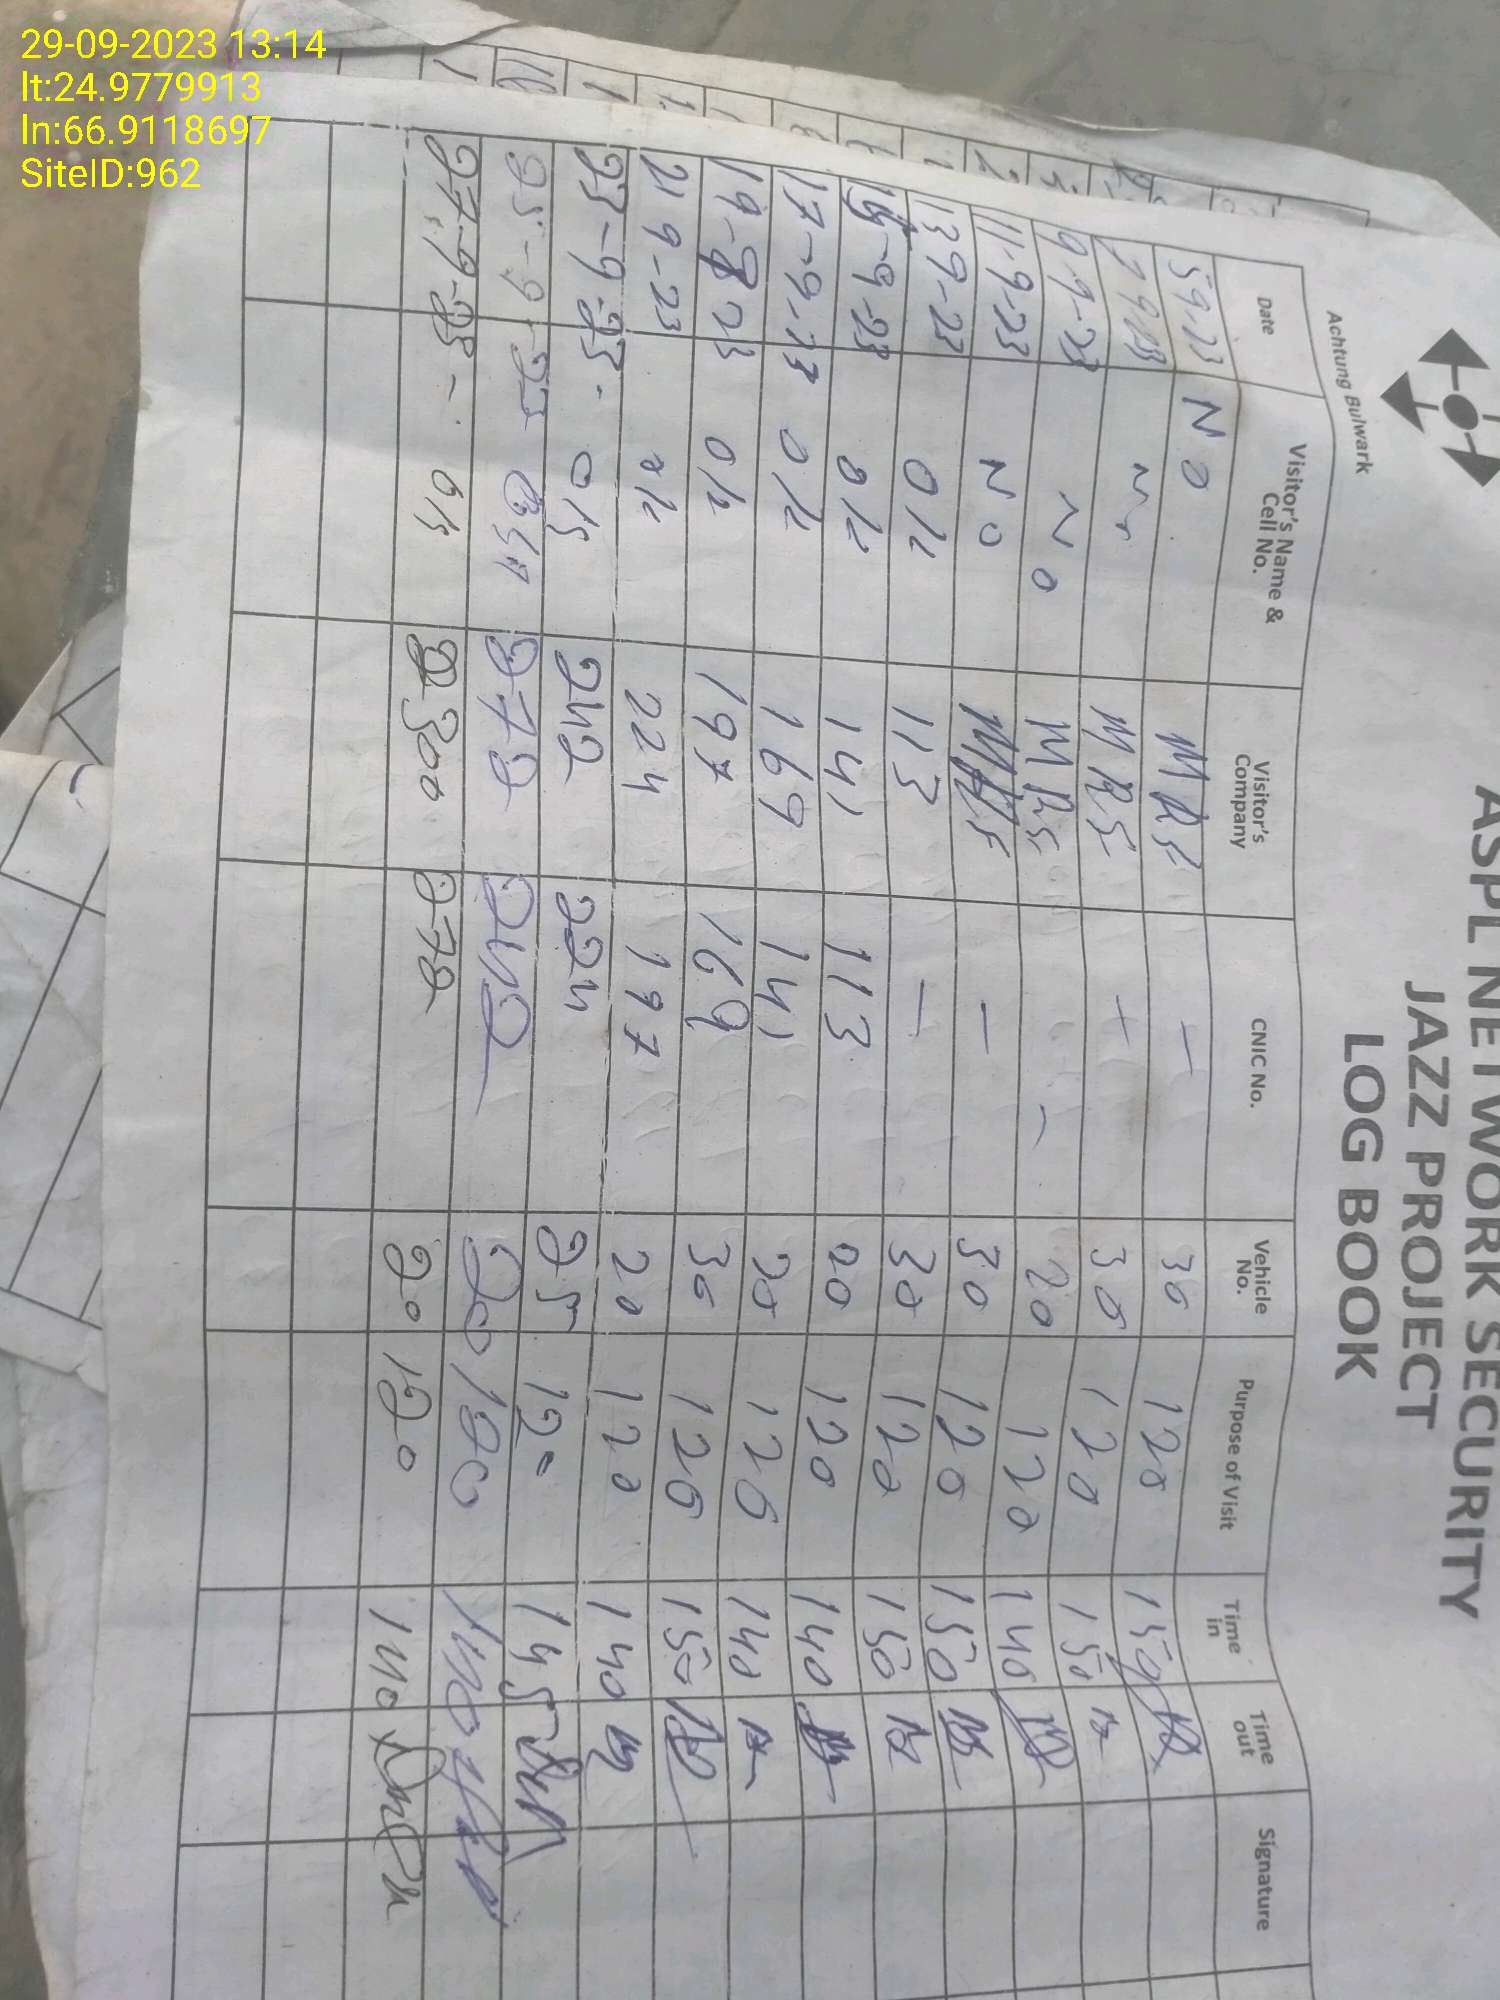 29-09-2023 13:14
lt:24.9779913
ln:66.9118697
SiteID:962
ASPL NETWORK SECURITY
JAZZ PROJECT
LOG BOOK
Achtung Bulwark
Date Visitor's Name & Cell No. Visitor's Company CNIC No. Vehicle No. Purpose of Visit Time in Time out Signature
5 9.23 NO MRS — 30 120 150
9 23 MRS 30 120 150
9-9-23 NO MRS - 20 120 140
11-9-23 NO — 30 120 150
13 9-23 OK 113 — 30 120 150
15-9-23 OK 141 113 20 120 140
17-9-23 OK 169 141 20 120 140
19- 23 OK 197 169 30 120 150
21 9-23 OK 224 197 20 120 140
23-9-23- OK 242 224 25 120 145
25-9-23 272 242 20 120 140
27-9-23- OK 300 272 20 120 140